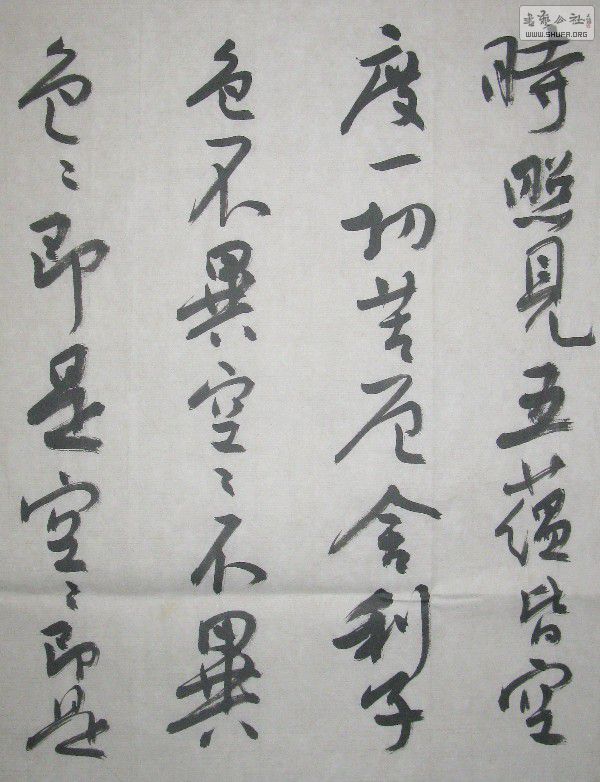 時照見五蘊皆空
度一切苦厄舍利子
色不異空〻不異
色〻即是空〻即是
WWW.SHUFA.ORG